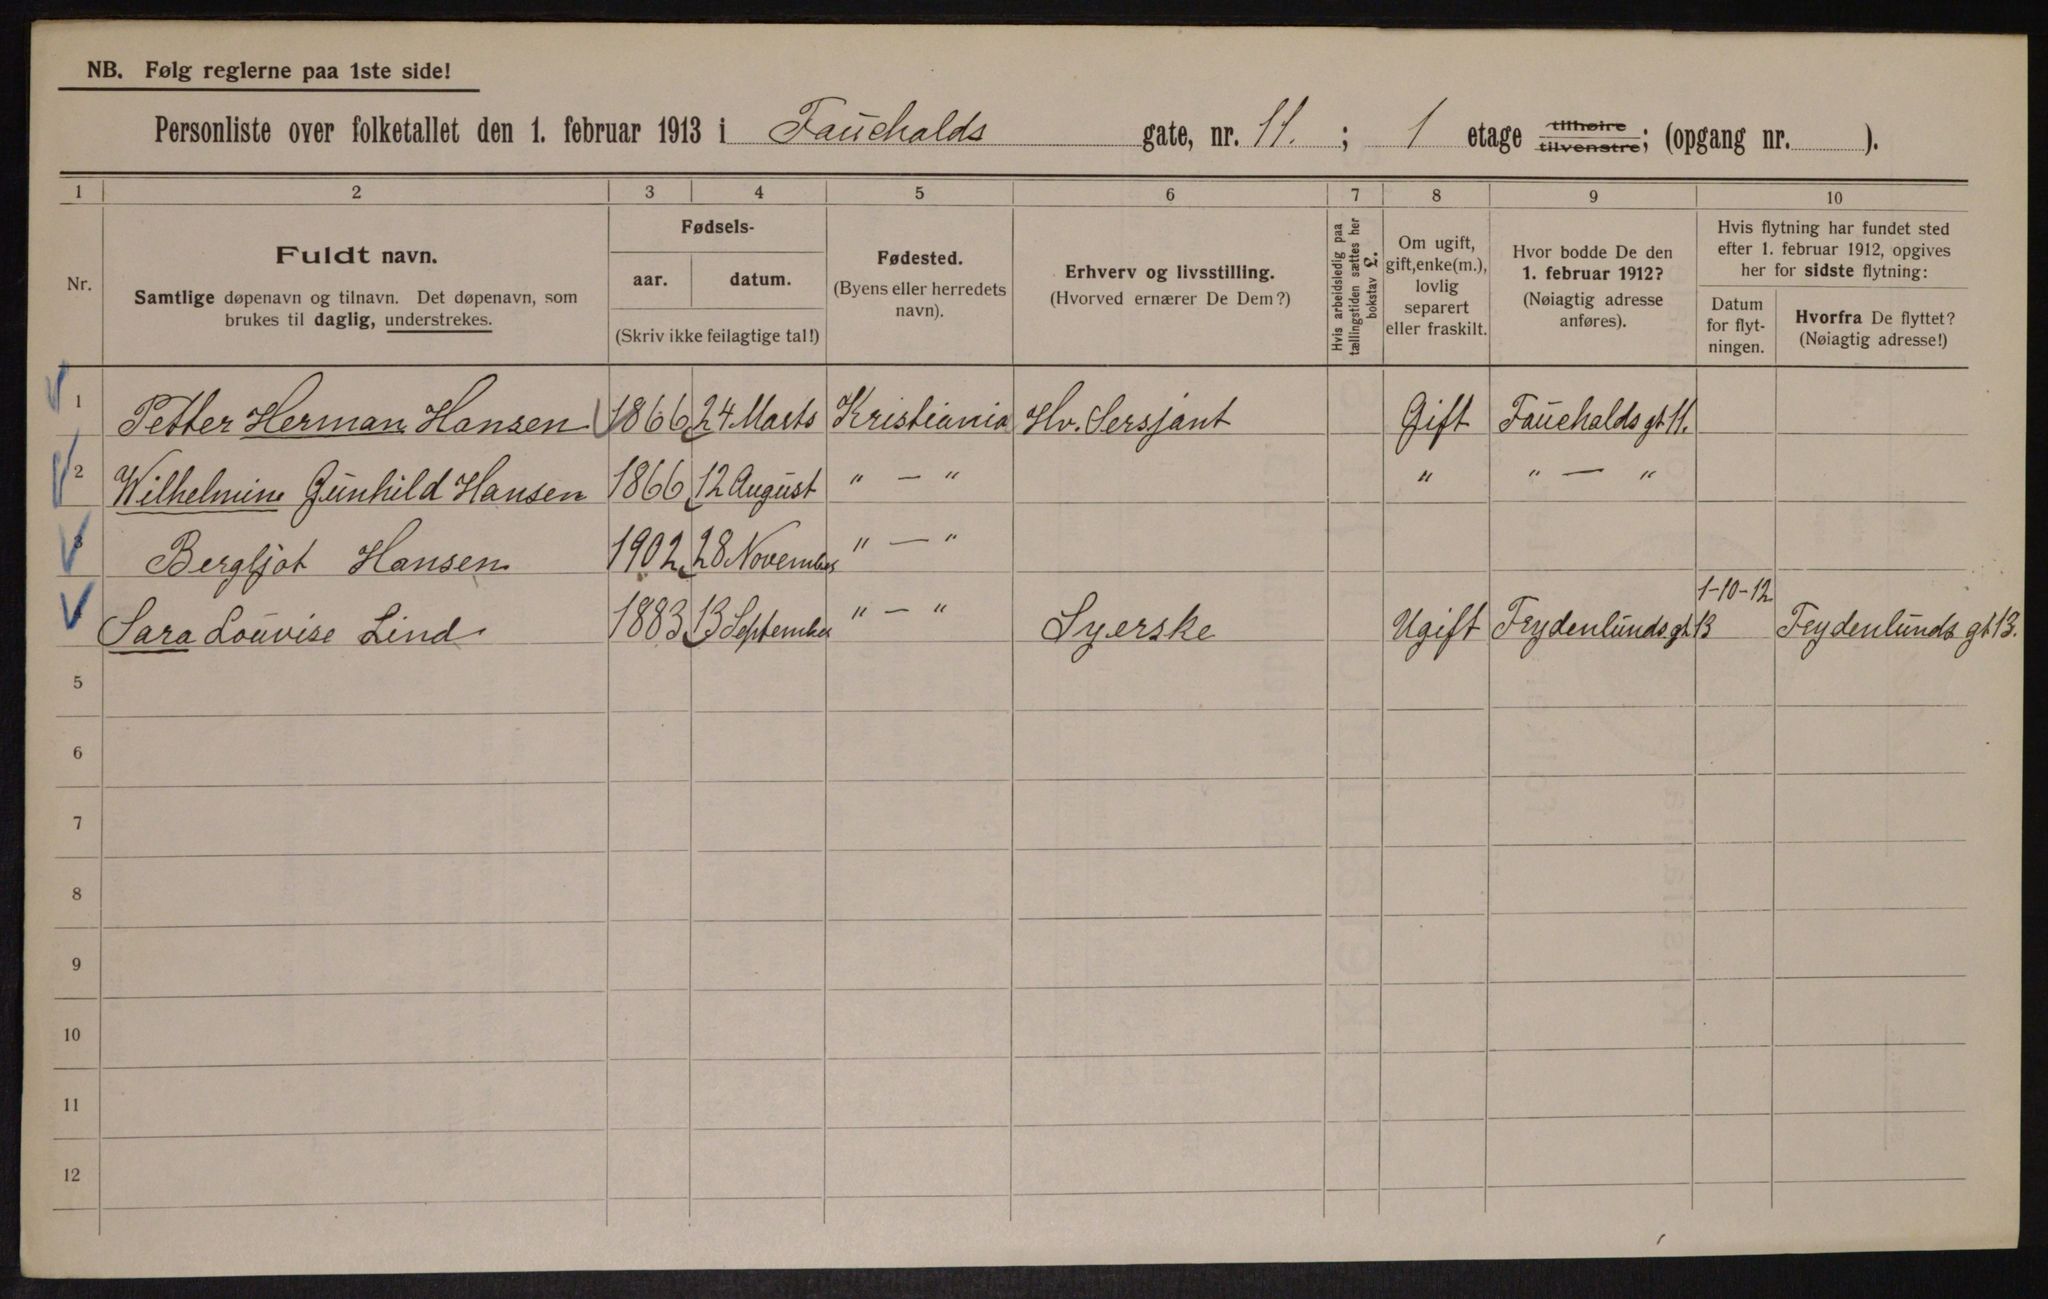 NB. Følg reglerne paa 1ste side!
Personliste over folketallet den 1. februar 1913 i Fauchalds gate, nr. 11. ; 1 etage tilhøire tilvenstre; (opgang nr. ).
1 2 3 4 5 6 7 8 9 10
Nr.
Fuldt navn.
Samtlige døpenavn og tilnavn. Det døpenavn, som
brukes til daglig, understrekes.
Fødsels-
aar. datum.
(Skriv ikke feilagtige tal!)
Fødested.
(Byens eller herredets
navn).
Erhverv og livsstilling.
(Hvorved ernærer De Dem?)
Hvis arbeidsledig paa
tællingstiden sættes her
bokstav L.
Om ugift,
gift, enke(m.),
lovlig
separert
eller fraskilt.
Hvor bodde De den
1. februar 1912?
(Nøiagtig adresse
anføres).
Hvis flytning har fundet sted
efter 1. februar 1912, opgives
her for sidste flytning:
Datum
for flyt-
ningen.
Hvorfra De flyttet?
(Nøiagtig adresse!)
1 Petter Herman Hansen 1866 24 Marts Kristiania Hv. Sersjant Gift Fauchalds gt 11.
2 Wilhelmine Gunhild Hansen 1866 12 August " — " " " — "
3 Bergljot Hansen 1902 28 November " — "
Sara Louvise Lind 1883 13 September " — " Syerske Ugift Frydenlunds gt 13 1-10-12 Frydenlunds gt 13.
5
6
7
8
9
10
11
12